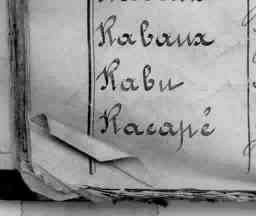 Rabaux
Rabu
Racapé